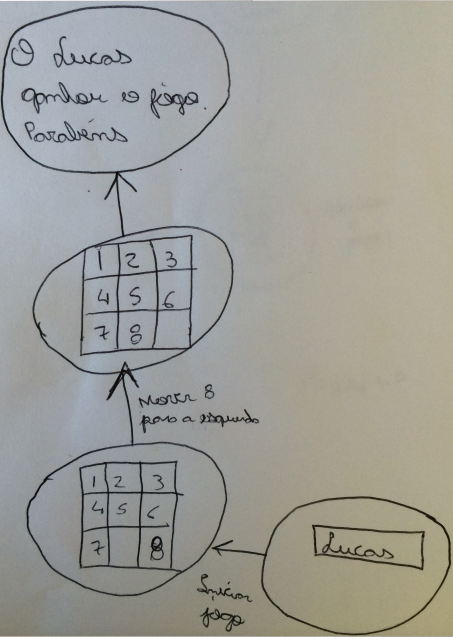 O Lucas
ganhou o jogo.
Parabéns
1 2 3
4 5 6
7 8
Mover 8
para a esquerda
1 2 3
4 5 6
7 8
Lucas
Iniciar
jogo